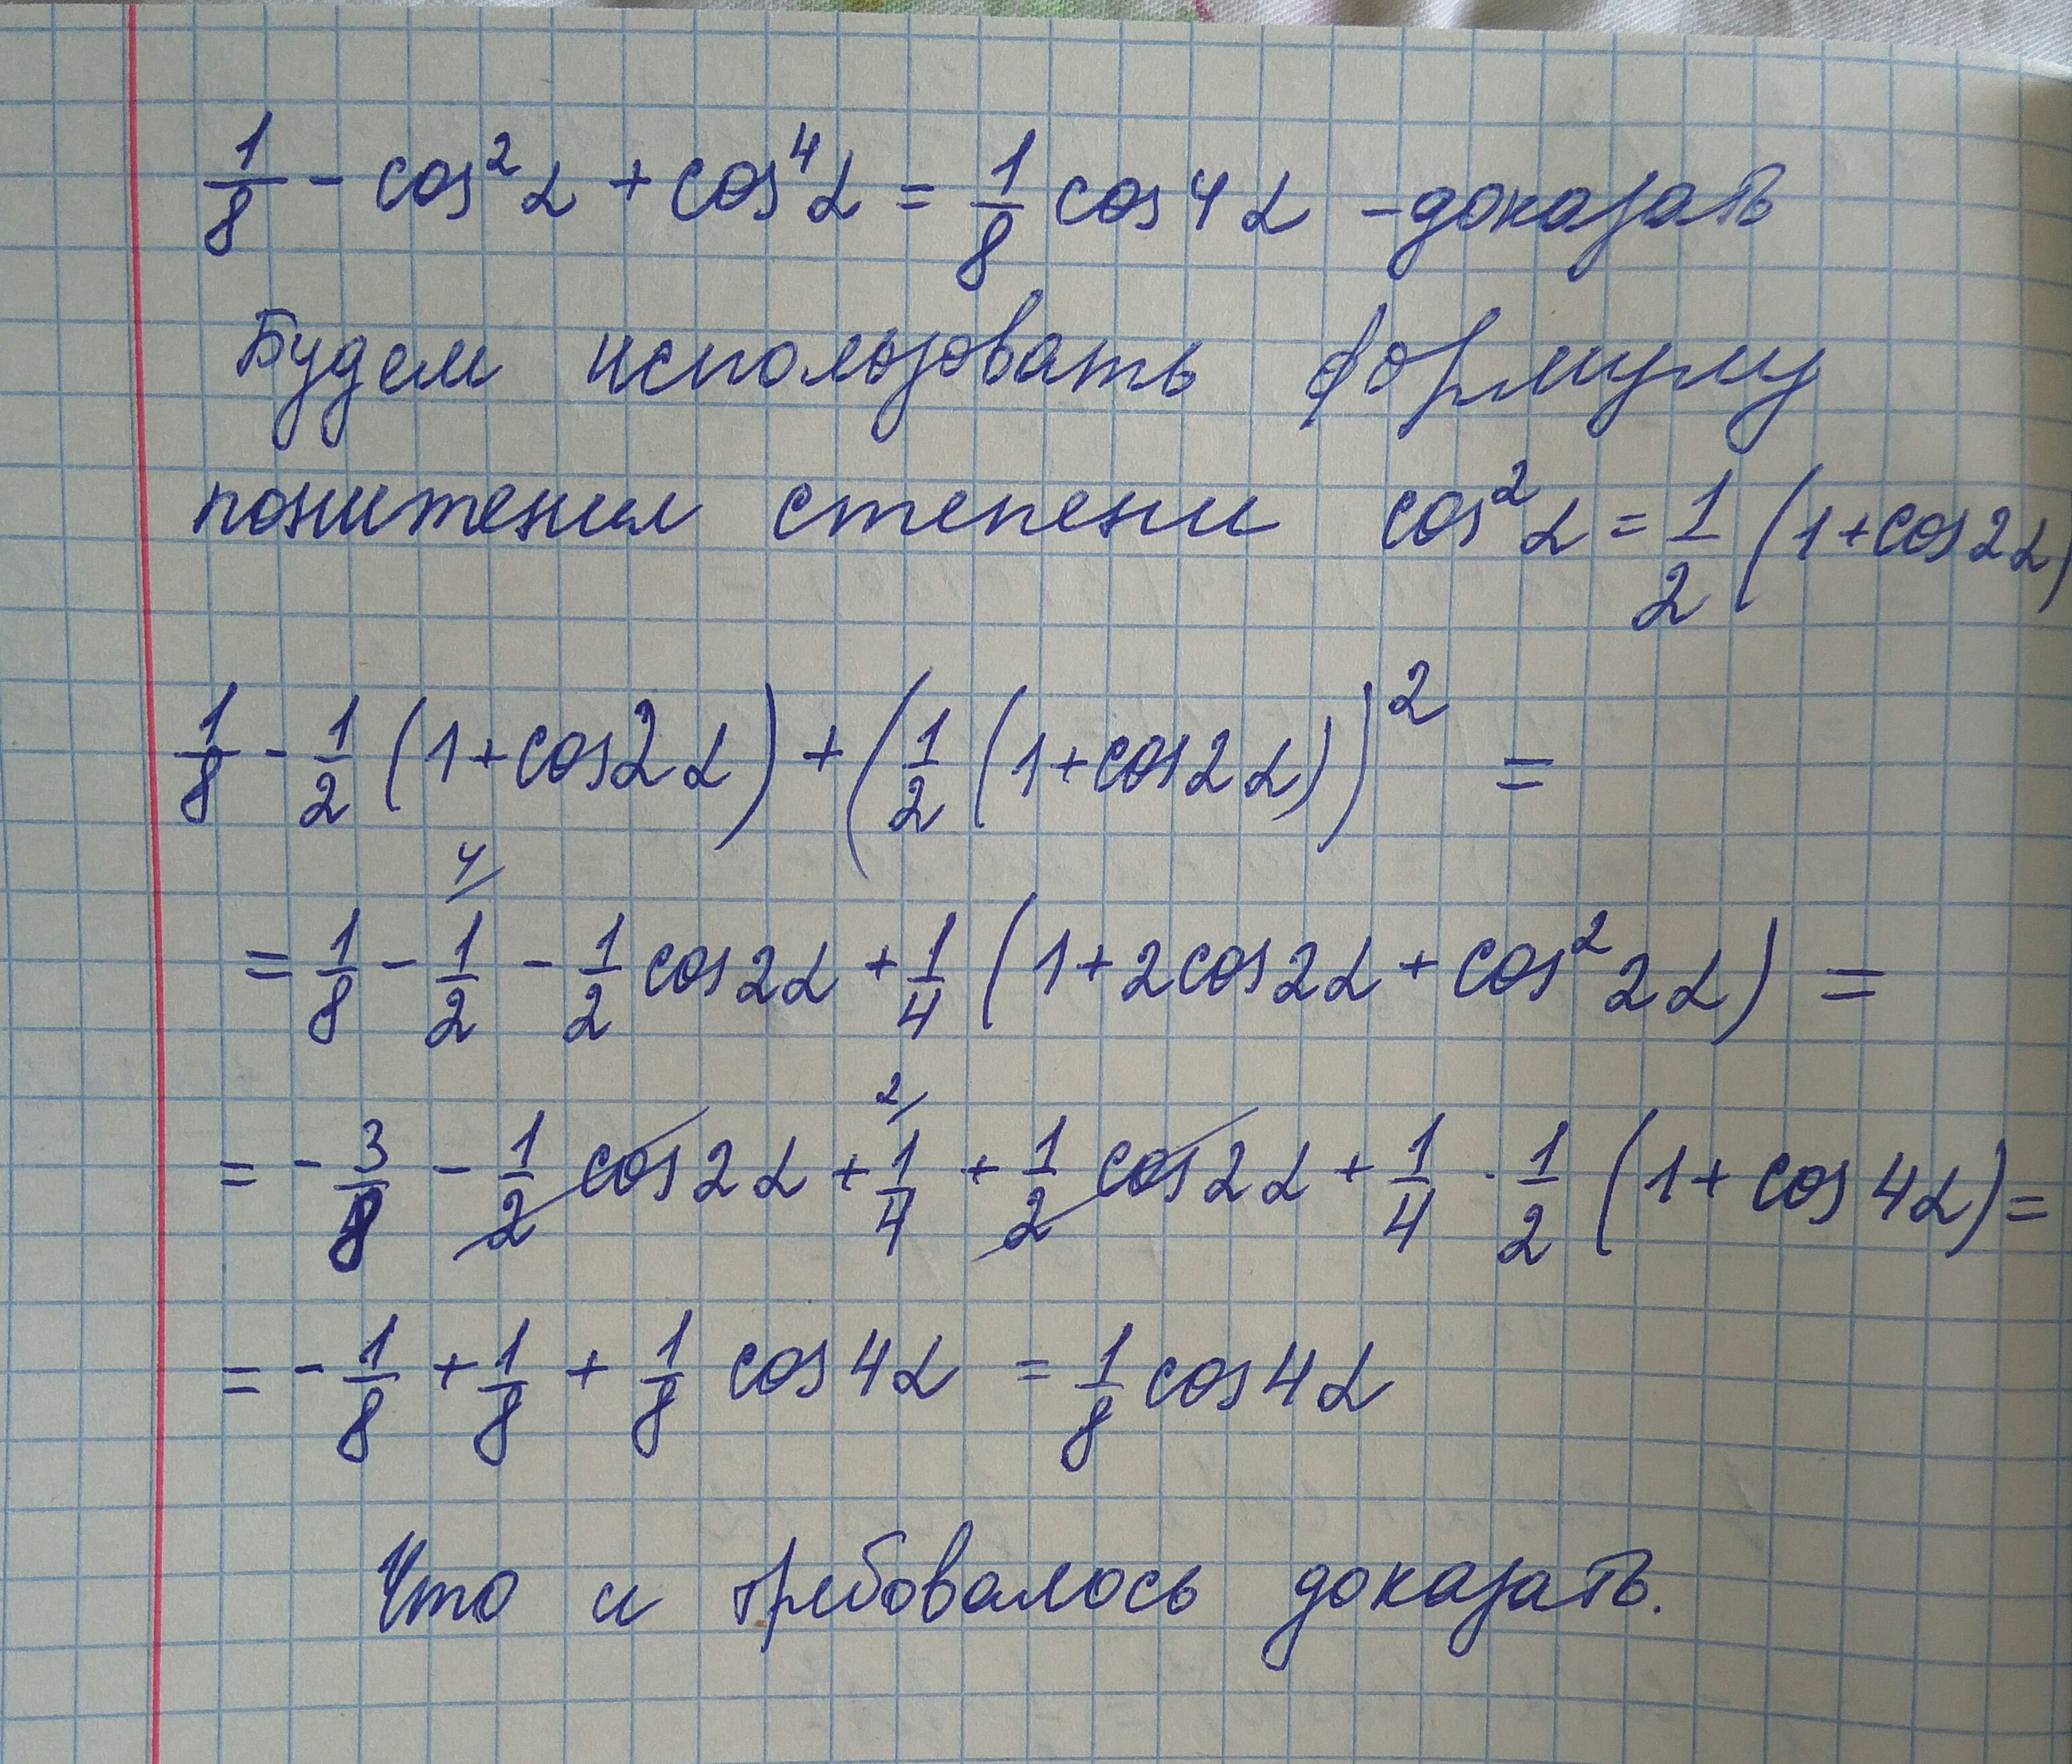 1/8 - cos²α + cos⁴α = 1/8 cos4α - доказать
Будем использовать формулу
понижения степени cos²α = 1/2 (1+cos2α)
1/8 - 1/2 (1+cos2α) + (1/2 (1+cos2α))² =
= 1/8 - ⁴⁄1/2 - 1/2 cos2α + 1/4 (1+2cos2α + cos²2α) =
= - 3/8 - 1/2 cos2α + ²⁄1/4 + 1/2 cos2α + 1/4 · 1/2 (1+ cos4α) =
= - 1/8 + 1/8 + 1/8 cos4α = 1/8 cos4α
Что и требовалось доказать.